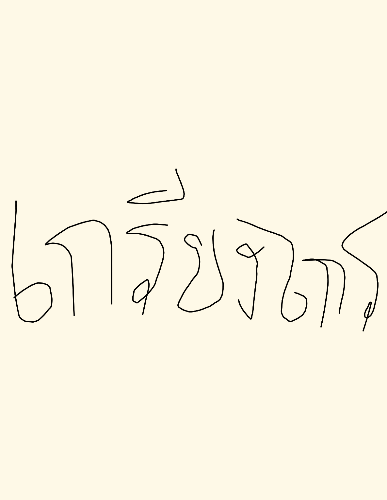 เกรียงไกร